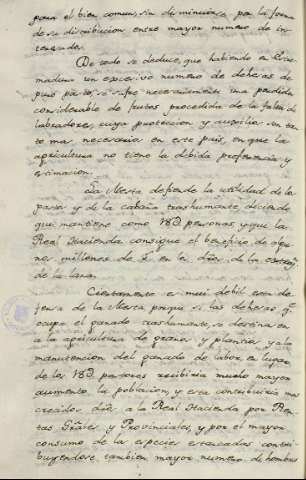 para el bien comun, sin disminuirse por la forma
de su distribucion entre mayor numero de in
teresados.
De todo se deduce, que habiendo en Extre
madura un excesivo numero de dehesas de
puro pasto, se sufre necesariamente una perdida
considerable de frutos procedida de la falta de
labradores, cuya proteccion y auxilio son tan
to mas necesarios en este pais, en que la
agricultura no tiene la debida preferencia y
estimacion.
La Mesta defiende la utilidad de la
lana y de la cabaña trashumante, diciendo
que mantiene como 18D personas, y que la
Real Hacienda consigue el beneficio de algu
nos millones de rs. en los dros. de la extrac.on
de la lana.
Ciertamente es mui debil esta de
fensa de la Mesta porque si las dehesas q.e
ocupa el ganado trashumante, se destinaran
a la agricultura de granos y plantios, y a la
manutencion del ganado de labor, en lugar
de los 18D pastores recibiria mucho mayor
aumento la poblacion, y esta contribuiria mas
crecidos dros. a la Real Hacienda por Ren
tas Grâles y Provinciales, y por el mayor
consumo de las especies estancadas contri
buyendose tambien mayor numero de hombres